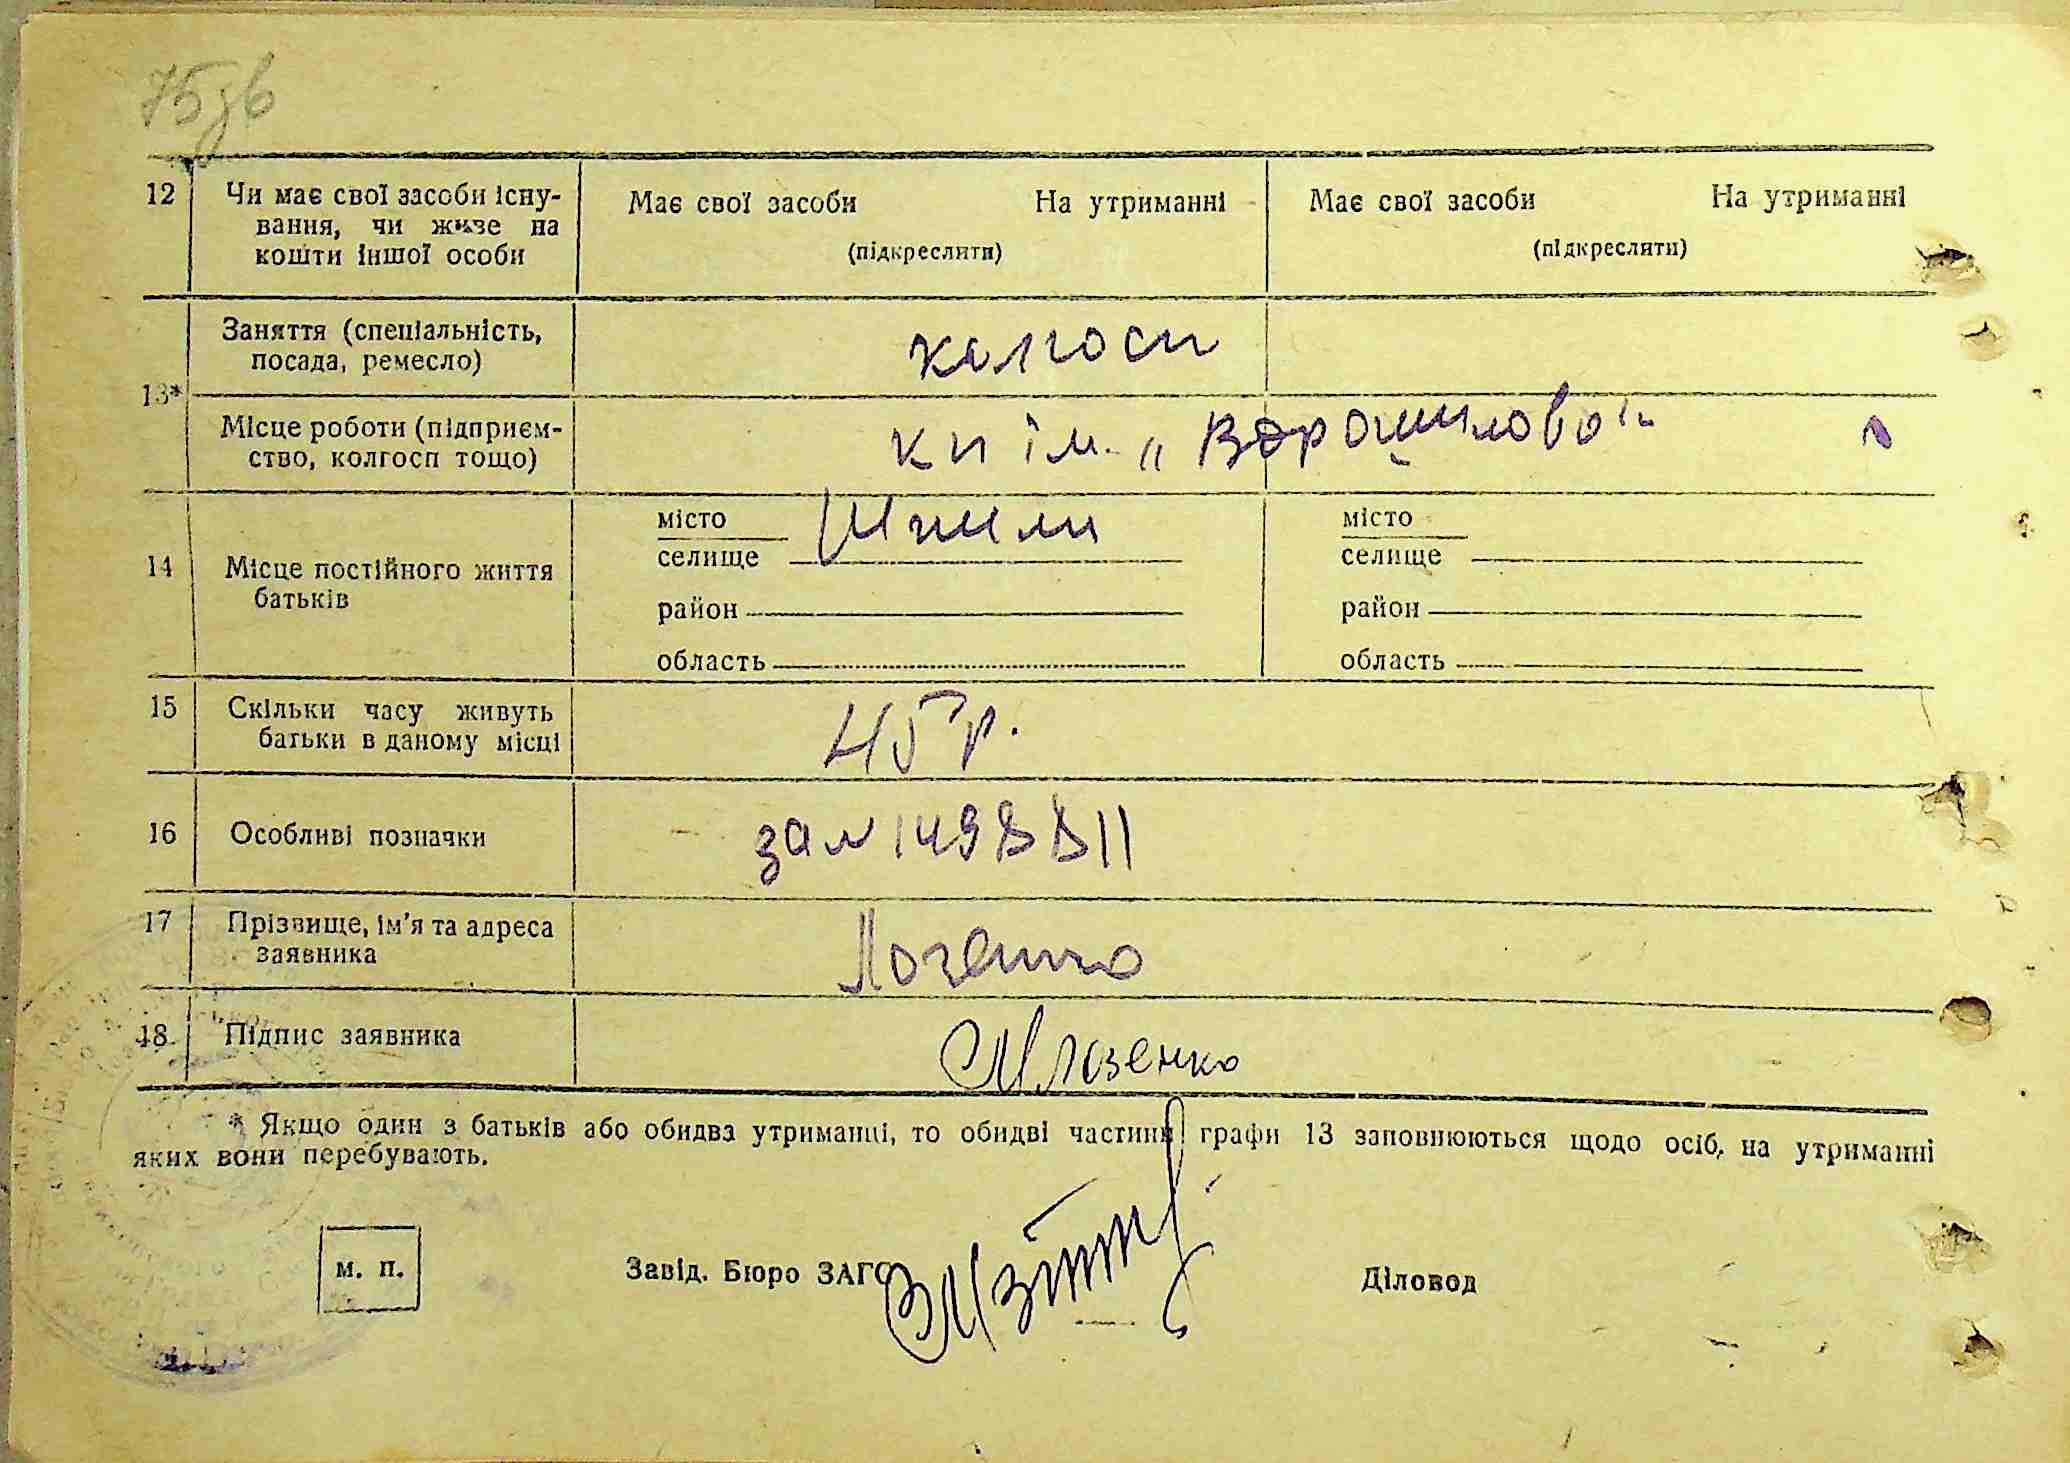 75 зв
12 Чи має свої засоби існу-
вання, чи живе на
кошти іншої особи
Має свої засоби На утриманні
(підкреслити)
Має свої засоби На утриманні
(підкреслити)
13*
Заняття (спеціальність,
посада, ремесло)
колгосп
Місце роботи (підприєм-
ство, колгосп тощо)
кп ім. „Ворошилова"
14 Місце постійного життя
батьків
місто
селище Шпили
район
область
місто
селище
район
область
15 Скільки часу живуть
батьки в даному місці
45 р.
16 Особливі позначки
17 Прізвище, ім'я та адреса
заявника
Лозенко
18 Підпис заявника
Лозенко
* Якщо один з батьків або обидва утриманці, то обидві частини графи 13 заповнюються щодо осіб, на утриманні
яких вони перебувають.
м. п.
Завід. Бюро ЗАГС
Діловод